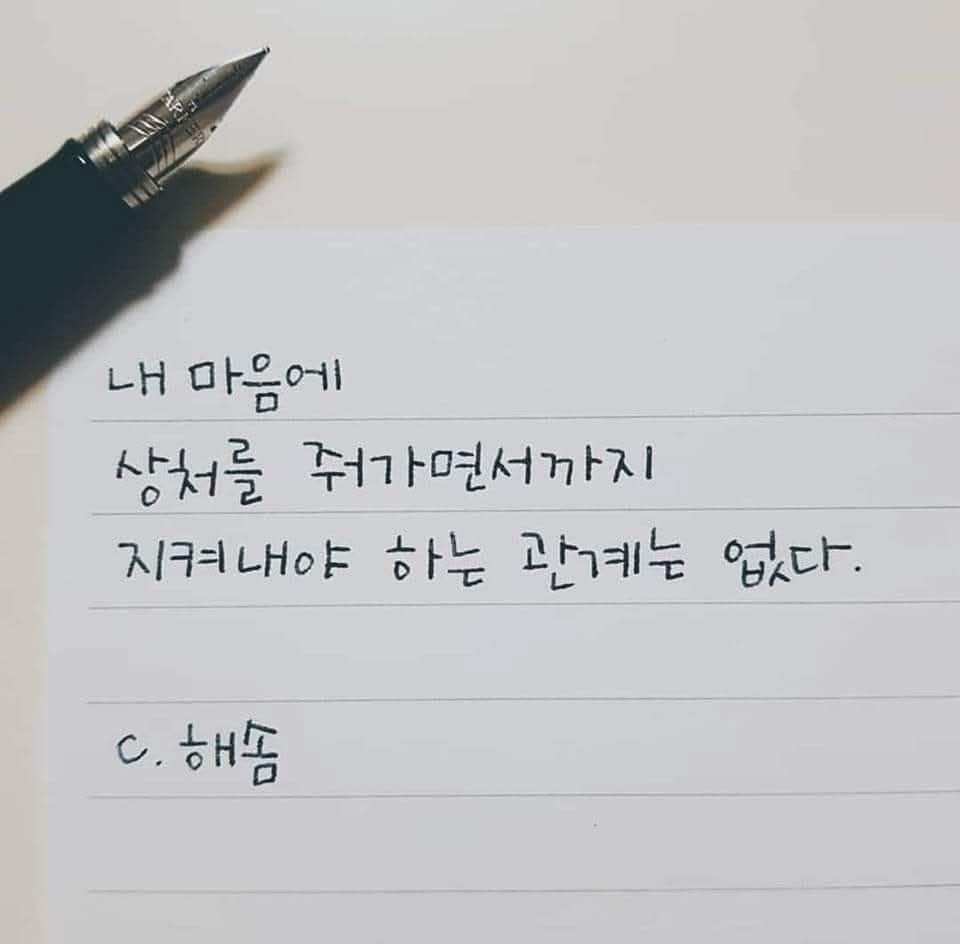 PARKER
내 마음에
상처를 줘가면서까지
지켜내야 하는 관계는 없다.
c. 해솜